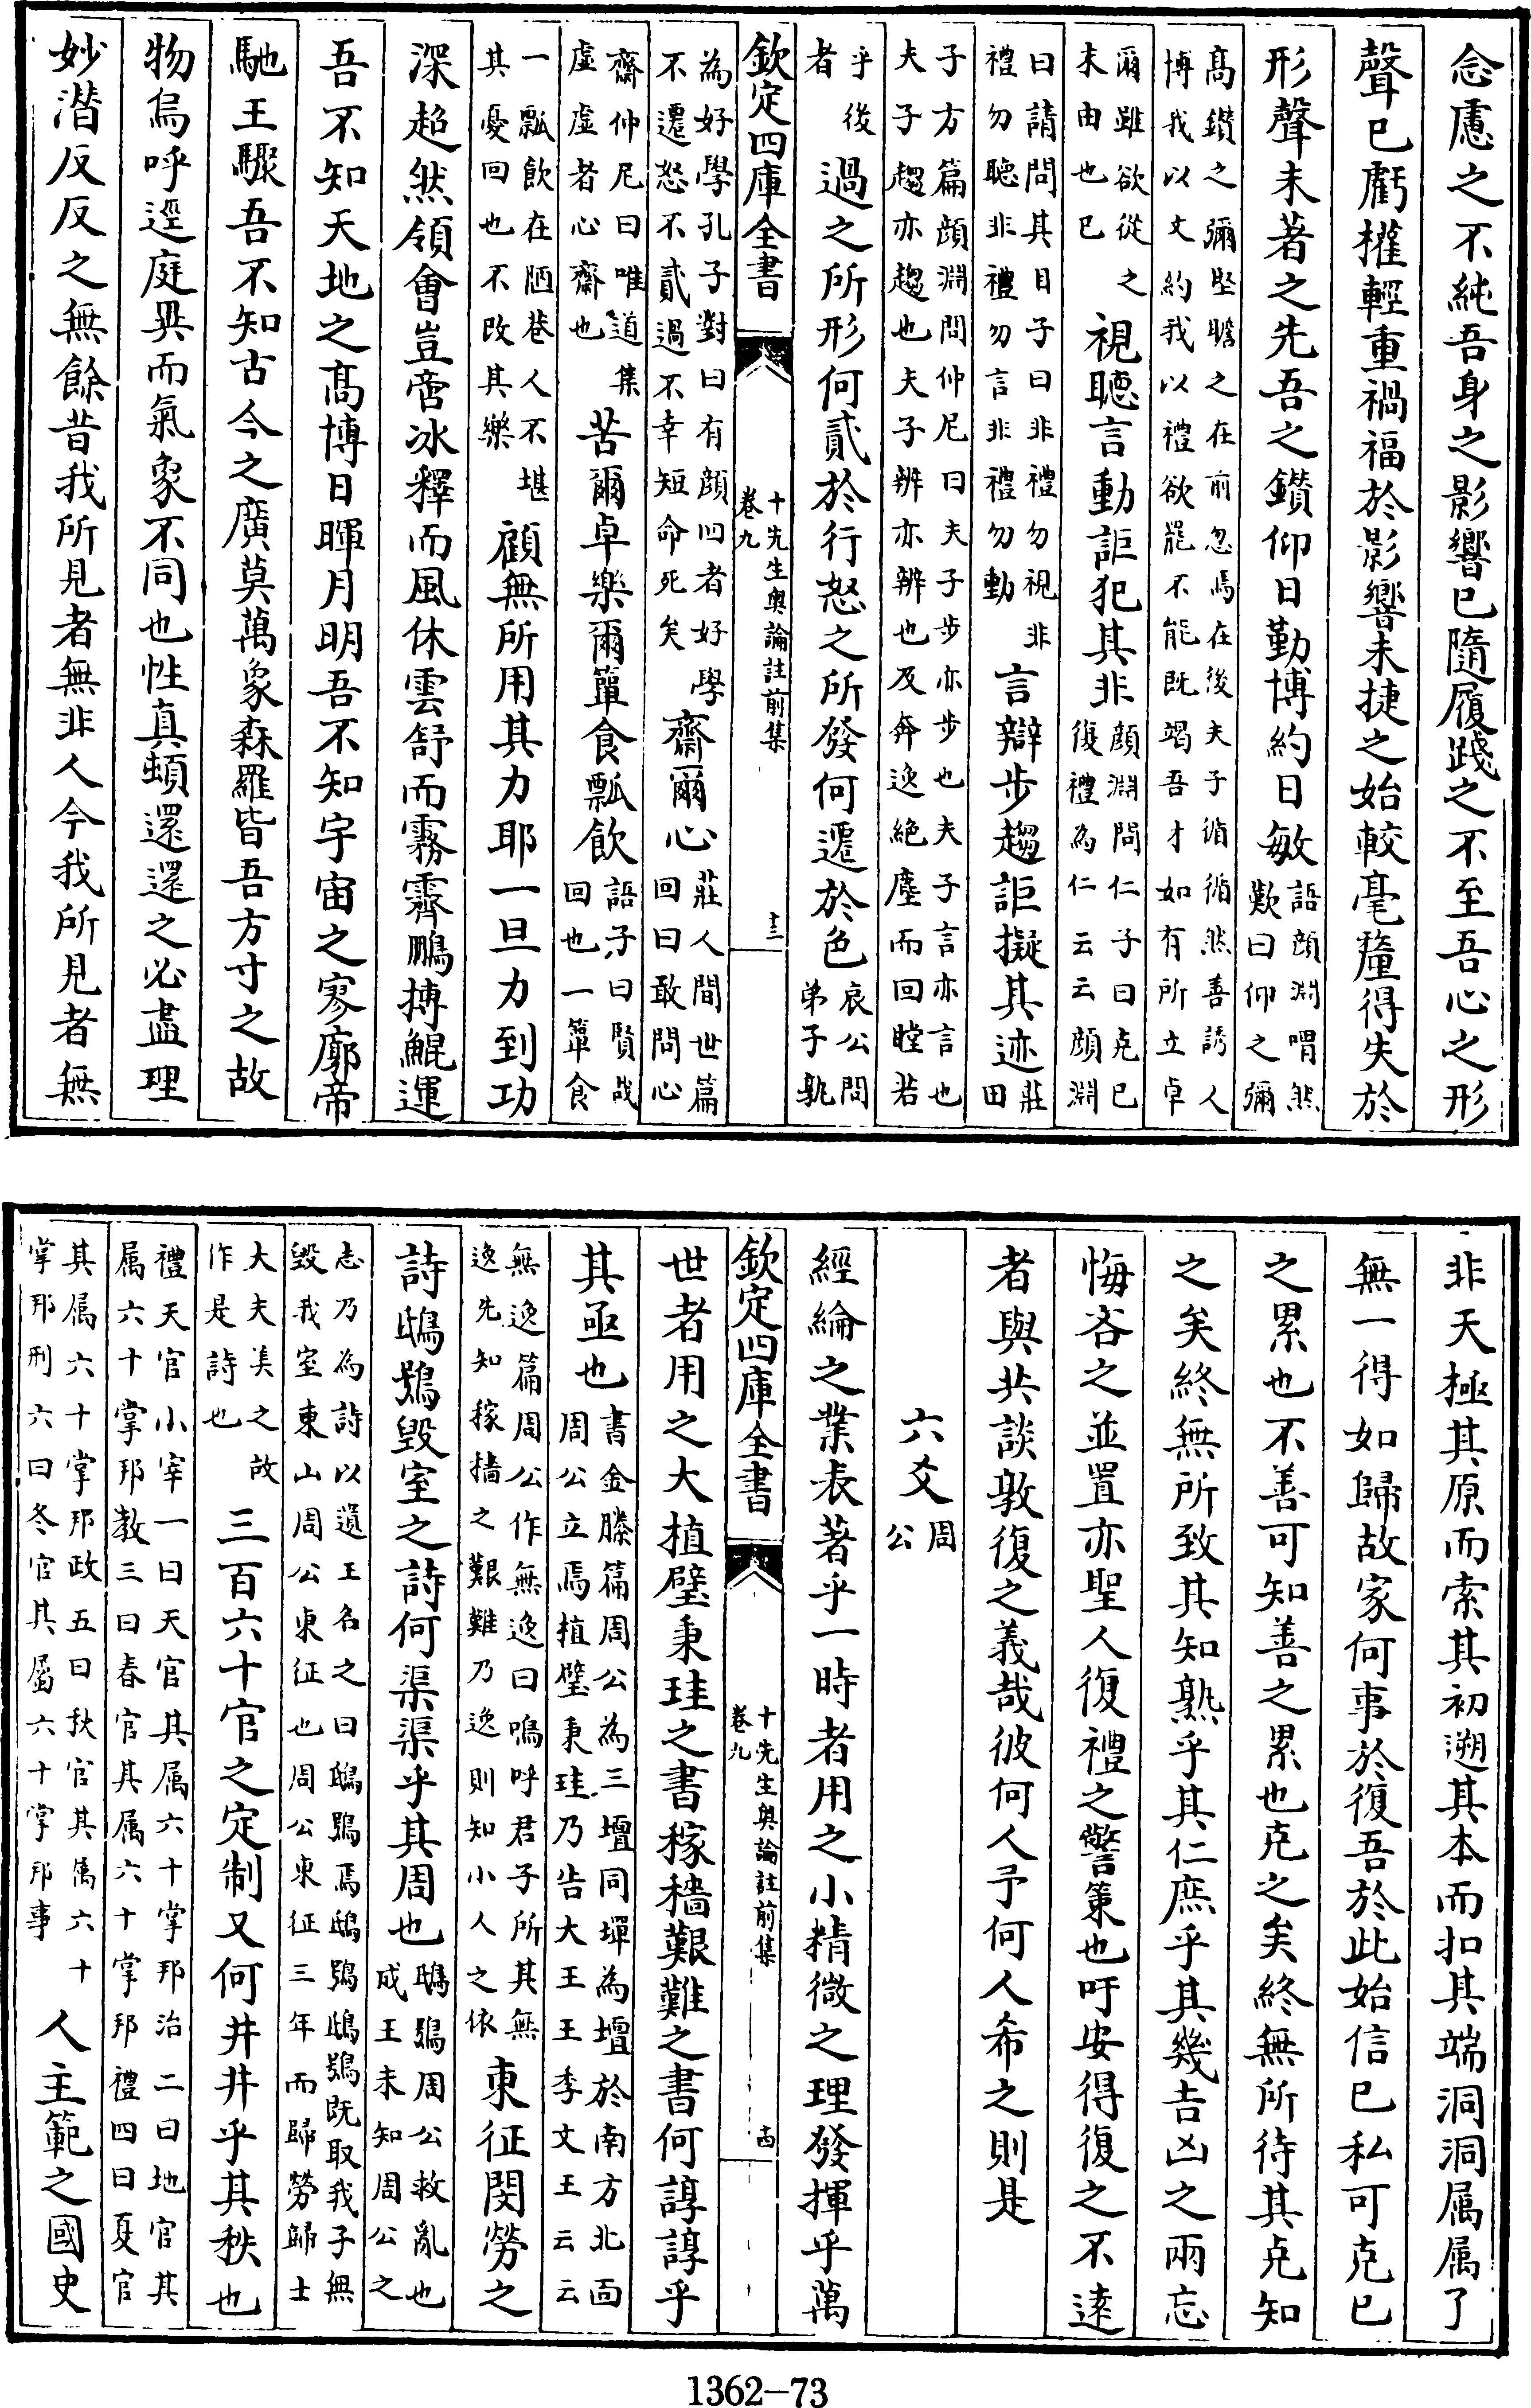 念慮之不純吾身之影響已隨履踐之不至吾心之形
聲已虧權輕重禍福於影響未捷之始較毫釐得失於
形聲未著之先吾之鑽仰日勤博約日敏語顔淵喟然歎曰仰之彌
高鑽之彌堅瞻之在前忽焉在後夫子循循然善誘人博我以文約我以禮欲罷不能既竭吾才如有所立卓
爾雖欲從之末由也已視聽言動詎犯其非顔淵問仁子曰克已復禮為仁云云顔淵
曰請問其目子曰非禮勿視非禮勿聽非禮勿言非禮勿動言辯步趨詎擬其迹莊田
子方篇顔淵問仲尼曰夫子步亦步也夫子言亦言也夫子趨亦趨也夫子辨亦辨也及奔逸絶塵而回瞠若
乎後者過之所形何貳於行怒之所發何遷於色哀公問弟子孰
欽定四庫全書
十先生奥論註前集
卷九
十三
為好學孔子對曰有顔回者好學不遷怒不貳過不幸短命死矣齋爾心莊人間世篇回曰敢問心
齋仲尼曰唯道集虛虛者心齋也苦爾卓樂爾簞食瓢飲語子曰賢哉回也一簞食
一瓢飲在陋巷人不堪其憂回也不改其樂顧無所用其力耶一旦力到功
深超然領會豈啻冰釋而風休雲舒而霧霽鵬搏鯤運
吾不知天地之髙博日暉月明吾不知宇宙之寥廓帝
馳王驟吾不知古今之廣莫萬象森羅皆吾方寸之故
物烏呼逕庭異而氣象不同也性真頓還還之必盡理
妙潛反反之無餘昔我所見者無非人今我所見者無
非天極其原而索其初遡其本而扣其端洞洞属属了
無一得如歸故家何事於復吾於此始信已私可克已
之累也不善可知善之累也克之矣終無所待其克知
之矣終無所致其知熟乎其仁庶乎其幾吉凶之兩忘
悔吝之並置亦聖人復禮之警策也吁安得復之不逺
者與共談敦復之義哉彼何人予何人希之則是
六爻周公
經綸之業表著乎一時者用之小精微之理發揮乎萬
欽定四庫全書
十先生奥論註前集
卷九
十四
世者用之大植璧秉珪之書稼穡艱難之書何諄諄乎
其亟也書金縢篇周公為三壇同墠為壇於南方北面周公立焉植璧秉珪乃告大王王季文王云云
無逸篇周公作無逸曰嗚呼君子所其無逸先知稼穡之艱難乃逸則知小人之依東征閔勞之
詩鴟鴞毀室之詩何渠渠乎其周也鴟鴞周公救亂也成王未知周公之
志乃為詩以遺王名之曰鴟鴞焉鴟鴞鴟鴞既取我子無毀我室東山周公東征也周公東征三年而歸勞歸士
大夫美之故作是詩也三百六十官之定制又何井井乎其秩也
禮天官小宰一曰天官其属六十掌邦治二曰地官其属六十掌邦教三曰春官其属六十掌邦禮四曰夏官
其属六十掌邦政五曰秋官其属六十掌邦刑六曰冬官其屬六十掌邦事人主範之國史
1362-73